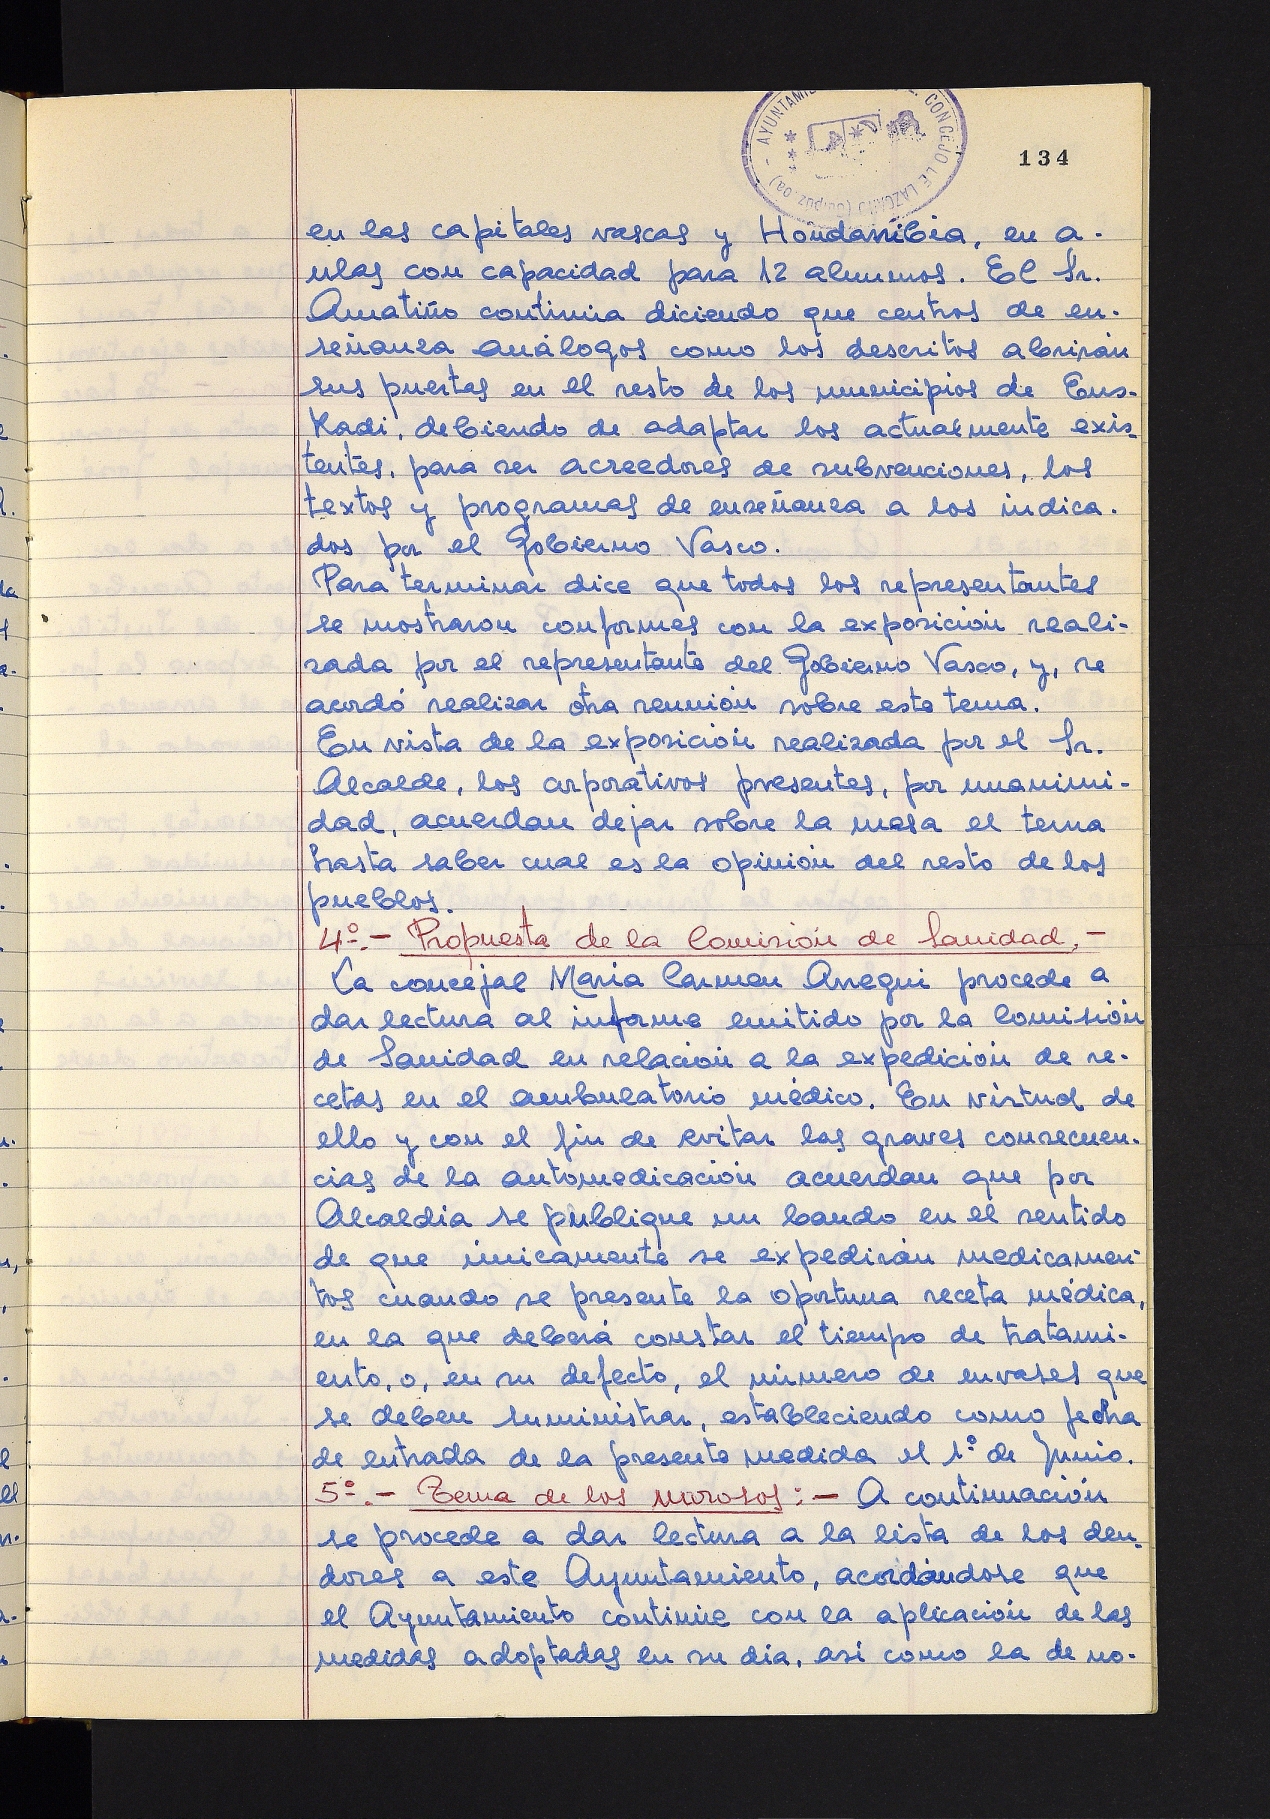 AYUNTAMI CONCEJO DE LAZCANO (Guipuzcoa) -
134
en las capitales vascas y Hondarribia, en a-
ulas con capacidad para 12 alumnos. El Sr.
Amatiño continua diciendo que centros de en-
señanza análogos como los descritos abrirán
sus puertas en el resto de los municipios de Eus-
Kadi, debiendo de adaptar los actualmente exis-
tentes, para ser acreedores de subvenciones, los
textos y programas de enseñanza a los indica-
dos por el Gobierno Vasco.
Para terminar dice que todos los representantes
se mostraron conformes con la exposición reali-
zada por el representante del Gobierno Vasco, y, se
acordó realizar otra reunión sobre este tema.
En vista de la exposición realizada por el Sr.
Alcalde, los corporativos presentes, por unanimi-
dad, acuerdan dejar sobre la mesa el tema
hasta saber cual es la opinión del resto de los
pueblos.
4º.- Propuesta de la Comisión de Sanidad.-
La concejal Maria Carmen Arregui procede a
dar lectura al informe emitido por la Comisión
de Sanidad en relación a la expedición de re-
cetas en el ambulatorio médico. En virtud de
ello y con el fin de evitar las graves consecuen-
cias de la automedicación acuerdan que por
Alcaldia se publique un bando en el sentido
de que únicamente se expedirán medicamen-
tos cuando se presente la oportuna receta médica,
en la que deberá constar el tiempo de tratami-
ento, o, en su defecto, el número de envases que
se deben suministrar, estableciendo como fecha
de entrada de la presente medida el 1º de Junio.
5º.- Tema de los morosos:- A continuación
se procede a dar lectura a la lista de los deu-
dores a este Ayuntamiento, acordándose que
el Ayuntamiento continúe con la aplicación de las
medidas adoptadas en su dia, asi como la de no-